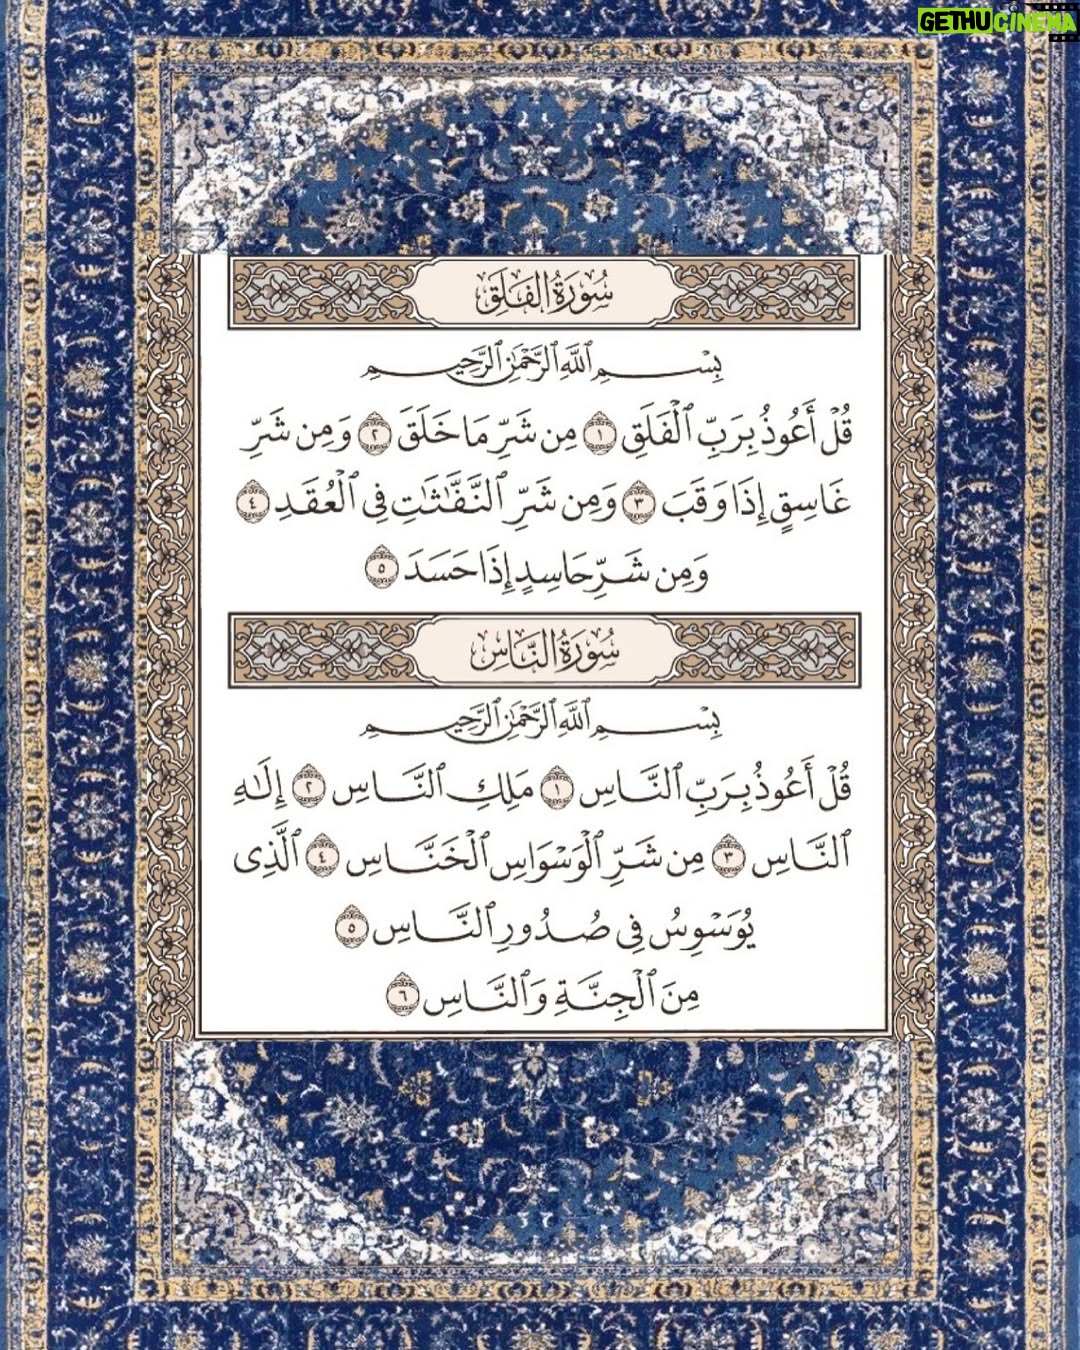 GETHUCINEMA
سُورَةُ الفَلَقِ
بِسْمِ ٱللَّهِ ٱلرَّحْمَٰنِ ٱلرَّحِيمِ
قُلْ أَعُوذُ بِرَبِّ ٱلْفَلَقِ ١ مِن شَرِّ مَا خَلَقَ ٢ وَمِن شَرِّ
غَاسِقٍ إِذَا وَقَبَ ٣ وَمِن شَرِّ ٱلنَّفَّٰثَٰتِ فِى ٱلْعُقَدِ ٤
وَمِن شَرِّ حَاسِدٍ إِذَا حَسَدَ ٥
سُورَةُ النَّاسِ
بِسْمِ ٱللَّهِ ٱلرَّحْمَٰنِ ٱلرَّحِيمِ
قُلْ أَعُوذُ بِرَبِّ ٱلنَّاسِ ١ مَلِكِ ٱلنَّاسِ ٢ إِلَٰهِ
ٱلنَّاسِ ٣ مِن شَرِّ ٱلْوَسْوَاسِ ٱلْخَنَّاسِ ٤ ٱلَّذِى
يُوَسْوِسُ فِى صُدُورِ ٱلنَّاسِ ٥
مِنَ ٱلْجِنَّةِ وَٱلنَّاسِ ٦